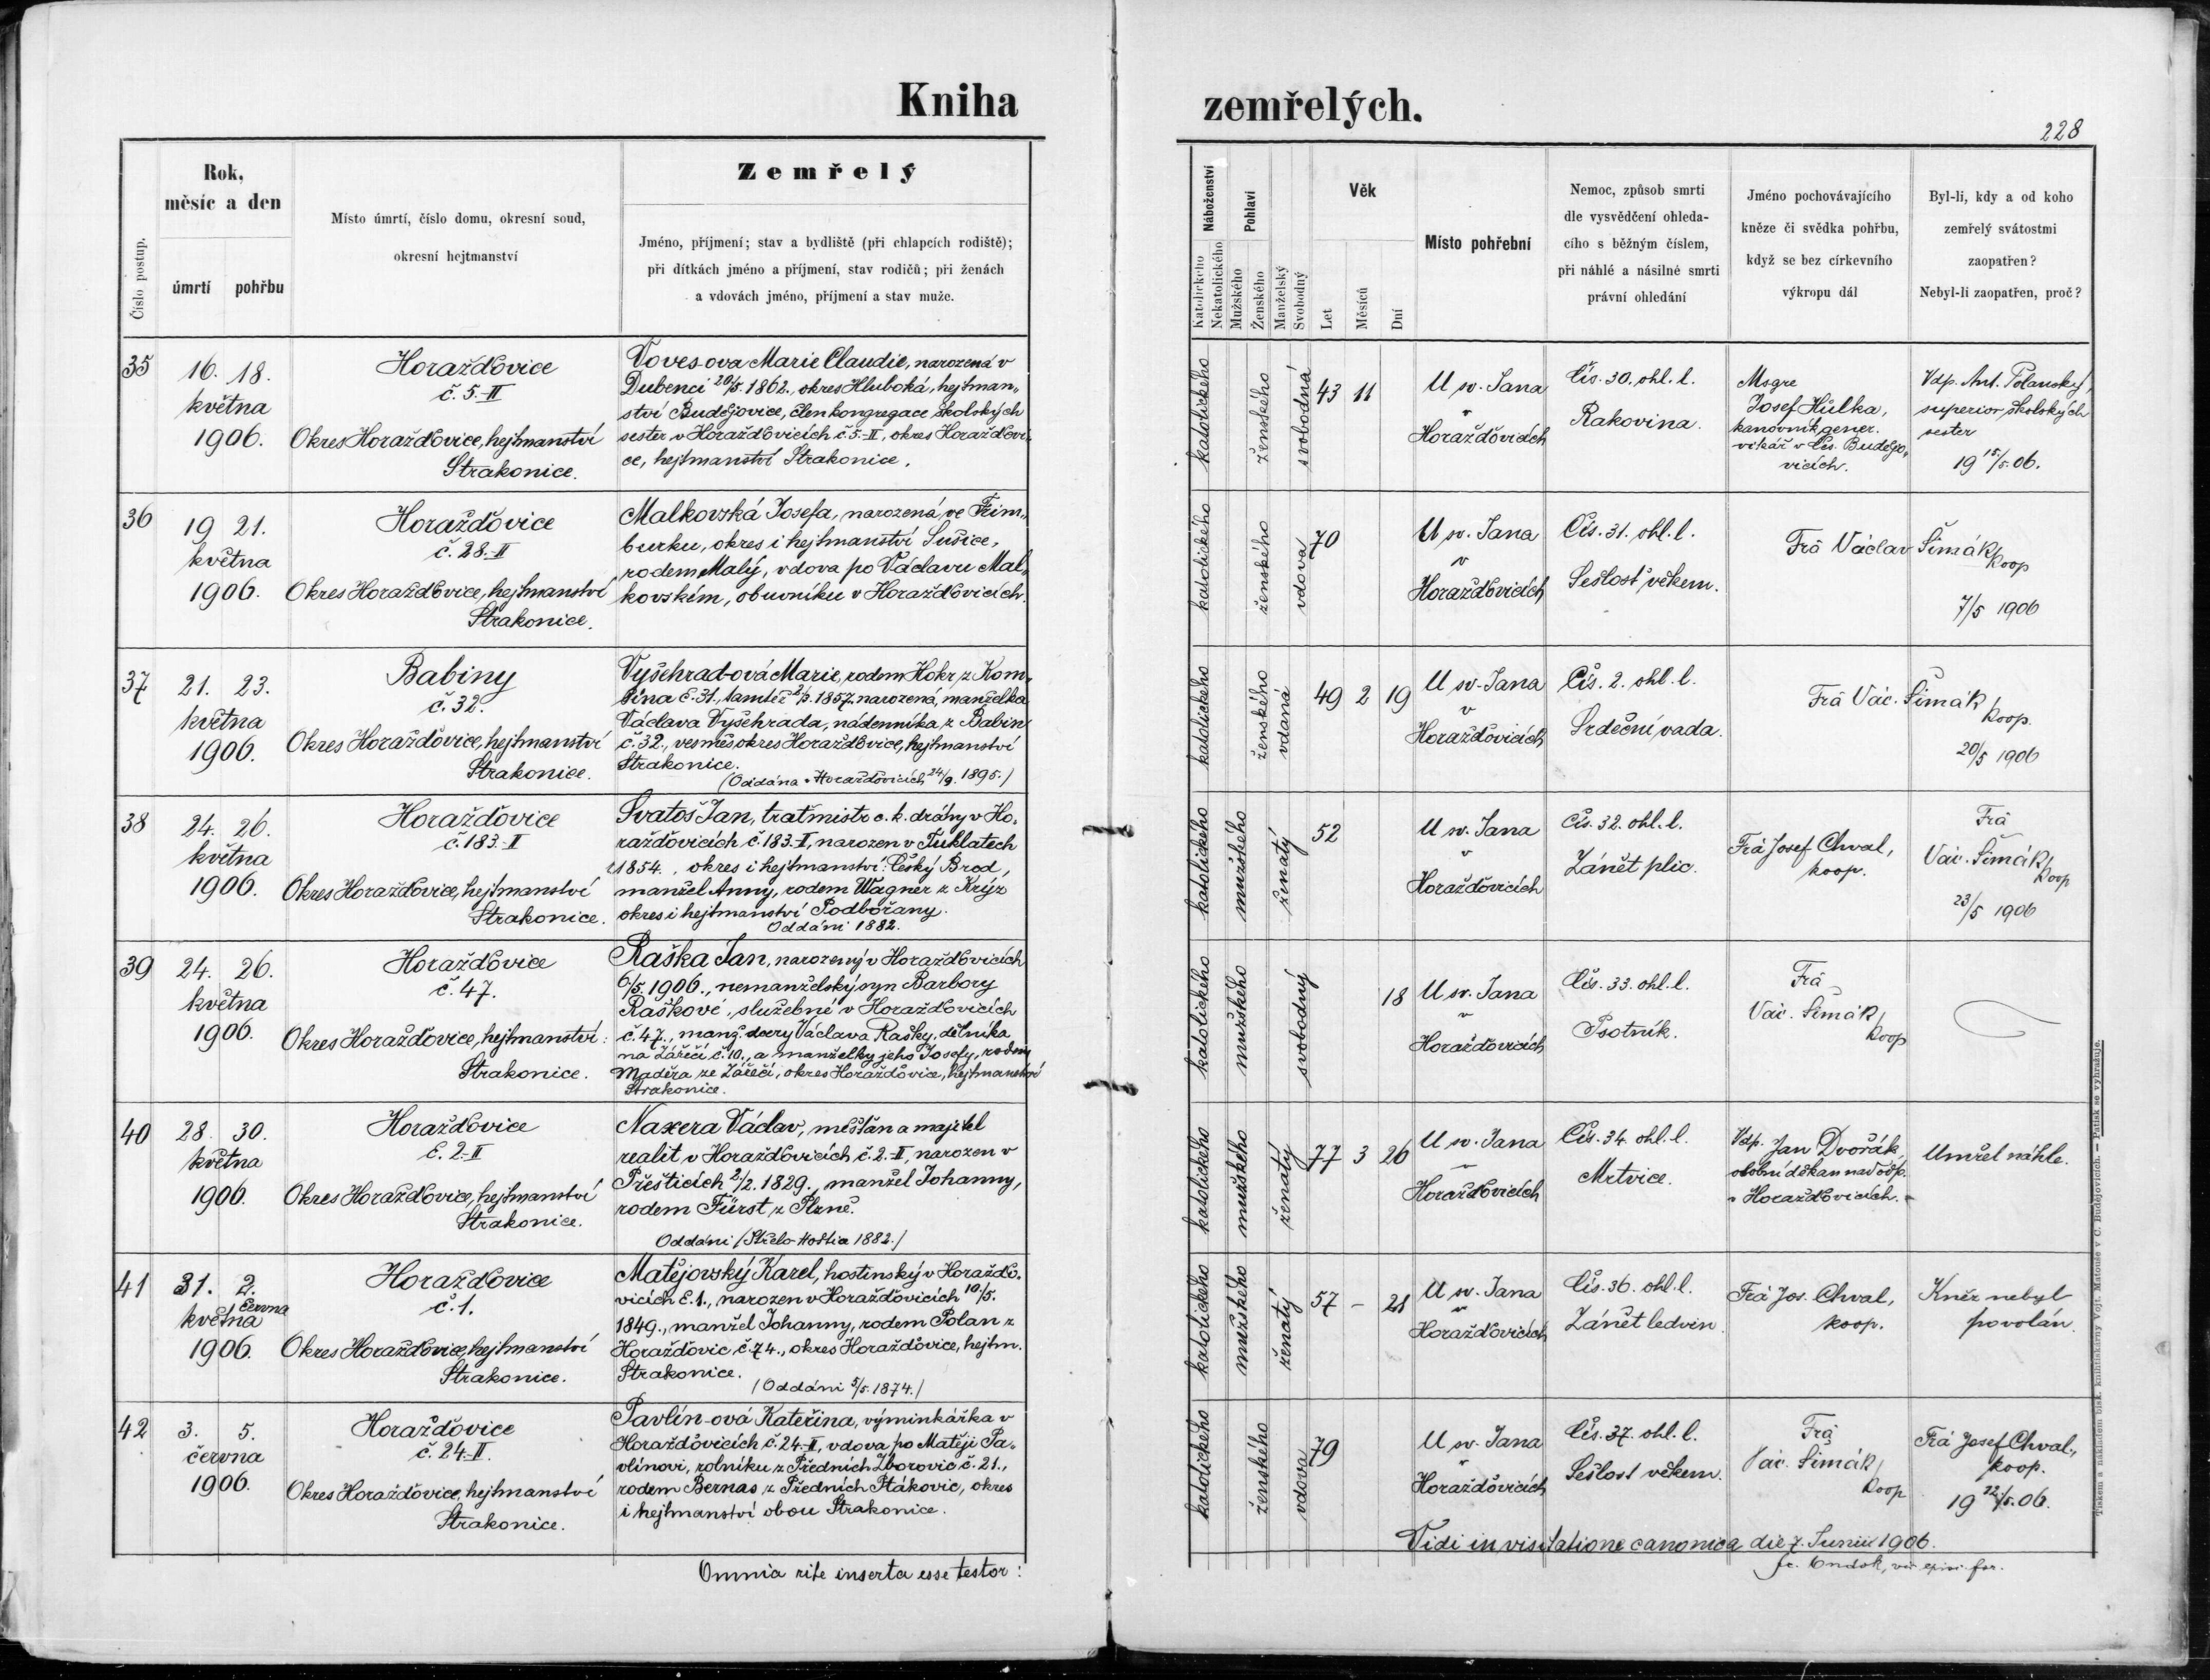 Kniha
zemřelých.
228
Číslo postup.
Rok,
měsíc a den
úmrtí pohřbu
Místo úmrtí, číslo domu, okresní soud,
okresní hejtmanství
Zemřelý
Jméno, příjmení; stav a bydliště (při chlapcích rodiště);
při dítkách jméno a příjmení, stav rodičů; při ženách
a vdovách jméno, příjmení a stav muže.
Náboženství
Katolického
Nekatolického
Pohlaví
Mužského
Ženského
Manželský
Svobodný
Věk
Let
Měsíců
Dní
Místo pohřební
Nemoc, způsob smrti
dle vysvědčení ohleda-
cího s běžným číslem,
při náhlé a násilné smrti
právní ohledání
Jméno pochovávajícího
kněze či svědka pohřbu,
když se bez církevního
výkropu dál
Byl-li, kdy a od koho
zemřelý svátostmi
zaopatřen?
Nebyl-li zaopatřen, proč?
35
16. 18.
května
1906.
Horažďovice
č. 5.-II
Okres Horažďovice, hejtmanství
Strakonice.
Voves-ova Marie Claudie, narozená v
Dubenci 20/5. 1862., okres Hluboká, hejtman„
ství Budějovice, člen kongregace školských
sester v Horažďovicích č 5.-II, okres Horažďovi„
ce, hejtmanství Strakonice.
katolického
ženského
svobodná
43 11
U sv. Jana
v
Horažďovicích
Čís. 30. ohl. l.
Rakovina.
Msgre
Josef Hůlka,
kanovník gener.
vikář v Čes. Budějo„
vicích.
Vdp. Ant. Polanský,
superior školských
sester
19 15/5. 06.
36
19 21.
května
1906.
Horažďovice
č. 28.-II
Okres Horažďovice, hejtmanství
Strakonice.
Malkovská Josefa, narozená ve Frim„
burku, okres i hejtmanství Sušice,
rodem Malý, vdova po Václavu Mal„
kovském, obuvníku v Horažďovicích.
katolického
ženského
vdova
70
U sv. Jana
v
Horažďovicích
Čís. 31. ohl. l.
Sešlost věkem.
Frá Václav Šimák
koop
7/5 1906
37
21. 23.
května
1906.
Babiny
č. 32.
Okres Horažďovice, hejtmanství
Strakonice.
Vyšehrad-ová Marie, rodem Hokr, z Kom„
šína č. 31., tamtéž 2/3. 1857. narozená, manželka
Václava Vyšehrada, nádenníka, z Babin
č. 32., vesměs okres Horažďovice, hejtmanství
Strakonice.
(Oddána v Horažďovicích 24/9. 1895.)
katolického
ženského
vdaná
49 2 19
U sv. Jana
v
Horažďovicích
Čís. 2. ohl. l.
Srdeční vada.
Frá Vác. Šimák
koop.
20/5 1906
38
24. 26.
května
1906.
Horažďovice
č. 183.-II
Okres Horažďovice, hejtmanství
Strakonice.
Svatoš Jan, traťmistr c. k. dráhy v Ho„
ražďovicích č. 183.-II, narozen v Tuklatech
1854., okres i hejtmanství: Český Brod,
manžel Anny, rodem Wagner z Krýr
okres i hejtmanství Podbořany.
Oddáni 1882.
katolického
mužského
ženatý
52
U sv. Jana
v
Horažďovicích
Čís. 32. ohl. l.
Zánět plic.
Frá Josef Chval,
koop.
Frá
Vác. Šimák,
koop
23/5 1906
39
24. 26.
května
1906.
Horažďovice
č. 47.
Okres Horažďovice, hejtmanství:
Strakonice.
Raška Jan, narozený v Horažďovicích
6/5. 1906., nemanželský syn Barbory
Raškové, služebné v Horažďovicích
č. 47., manž. dcery Václava Rašky, dělníka
na Zářečí č. 10., a manželky jeho Josefy, rodem
Maděra ze Zářečí, okres Horažďovice, hejtmanství
Strakonice.
katolického
mužského
svobodný
18
U sv. Jana
v
Horažďovicích
Čís. 33. ohl. l.
Psotník.
Frá
Vác. Šimák,
koop
40
28. 30.
května
1906.
Horažďovice
č. 2.-II
Okres Horažďovice, hejtmanství
Strakonice.
Naxera Václav, měšťan a majitel
realit v Horažďovicích č. 2.-II, narozen v
Přešticích 2/2. 1829., manžel Johanny,
rodem Fürst z Plzně.
Oddáni (Střelo-Hoštice 1882.)
katolického
mužského
ženatý
77 3 26
U sv. Jana
v
Horažďovicích
Čís. 34. ohl. l.
Mrtvice.
Vdp. Jan Dvořák,
osobní děkan
v Horažďovicích.
Umřel náhle.
41
31. 2.
června
května
1906.
Horažďovice
č. 1.
Okres Horažďovice, hejtmanství
Strakonice.
Matějovský Karel, hostinský v Horažďo„
vicích č. 1., narozen v Horažďovicích 10/5.
1849., manžel Johanny, rodem Polan z
Horažďovic, č. 74., okres Horažďovice, hejtm.
Strakonice.
(Oddáni 5/5. 1874.)
katolického
mužského
ženatý
57 – 21
U sv. Jana
v
Horažďovicích
Čís. 36. ohl. l.
Zánět ledvin
Frá Jos. Chval,
koop.
Kněz nebyl
povolán.
42
3. 5.
června
1906.
Horažďovice
č. 24.-II.
Okres Horažďovice, hejtmanství
Strakonice.
Pavlín-ová Kateřina, výminkářka v
Horažďovicích č. 24.-II, vdova po Matěji Pa„
vlínovi, rolníku z Předních Zborovic č. 21.,
rodem Bernas z Předních Ptákovic, okres
i hejtmanství obou Strakonice.
katolického
ženského
vdova
79
U sv. Jana
v
Horažďovicích
Čís. 37. ohl. l.
Sešlost věkem.
Frá
Vác. Šimák,
koop
Frá Josef Chval,
koop.
19 12/5. 06.
Omnia rite inserta esse testor:
Vidi in visitatione canonica die 7. Junii 1906.
Tiskem a nákladem bisk. knihtiskárny Vojt. Matouše v Č. Budějovicích. — Patisk se vyhražuje.